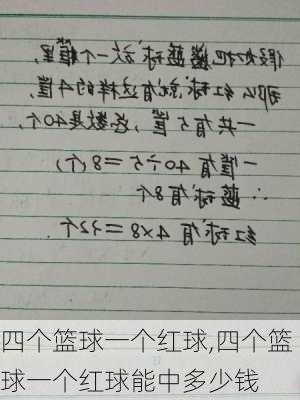 假如把蓝球放一个值里,
那么红球就有这样的4值,
一共有5值,总数是40个,
一值有 40÷5=8(个)
∴ 蓝球有8个
红球有 4×8=32个.
四个篮球一个红球,四个篮
球一个红球能中多少钱